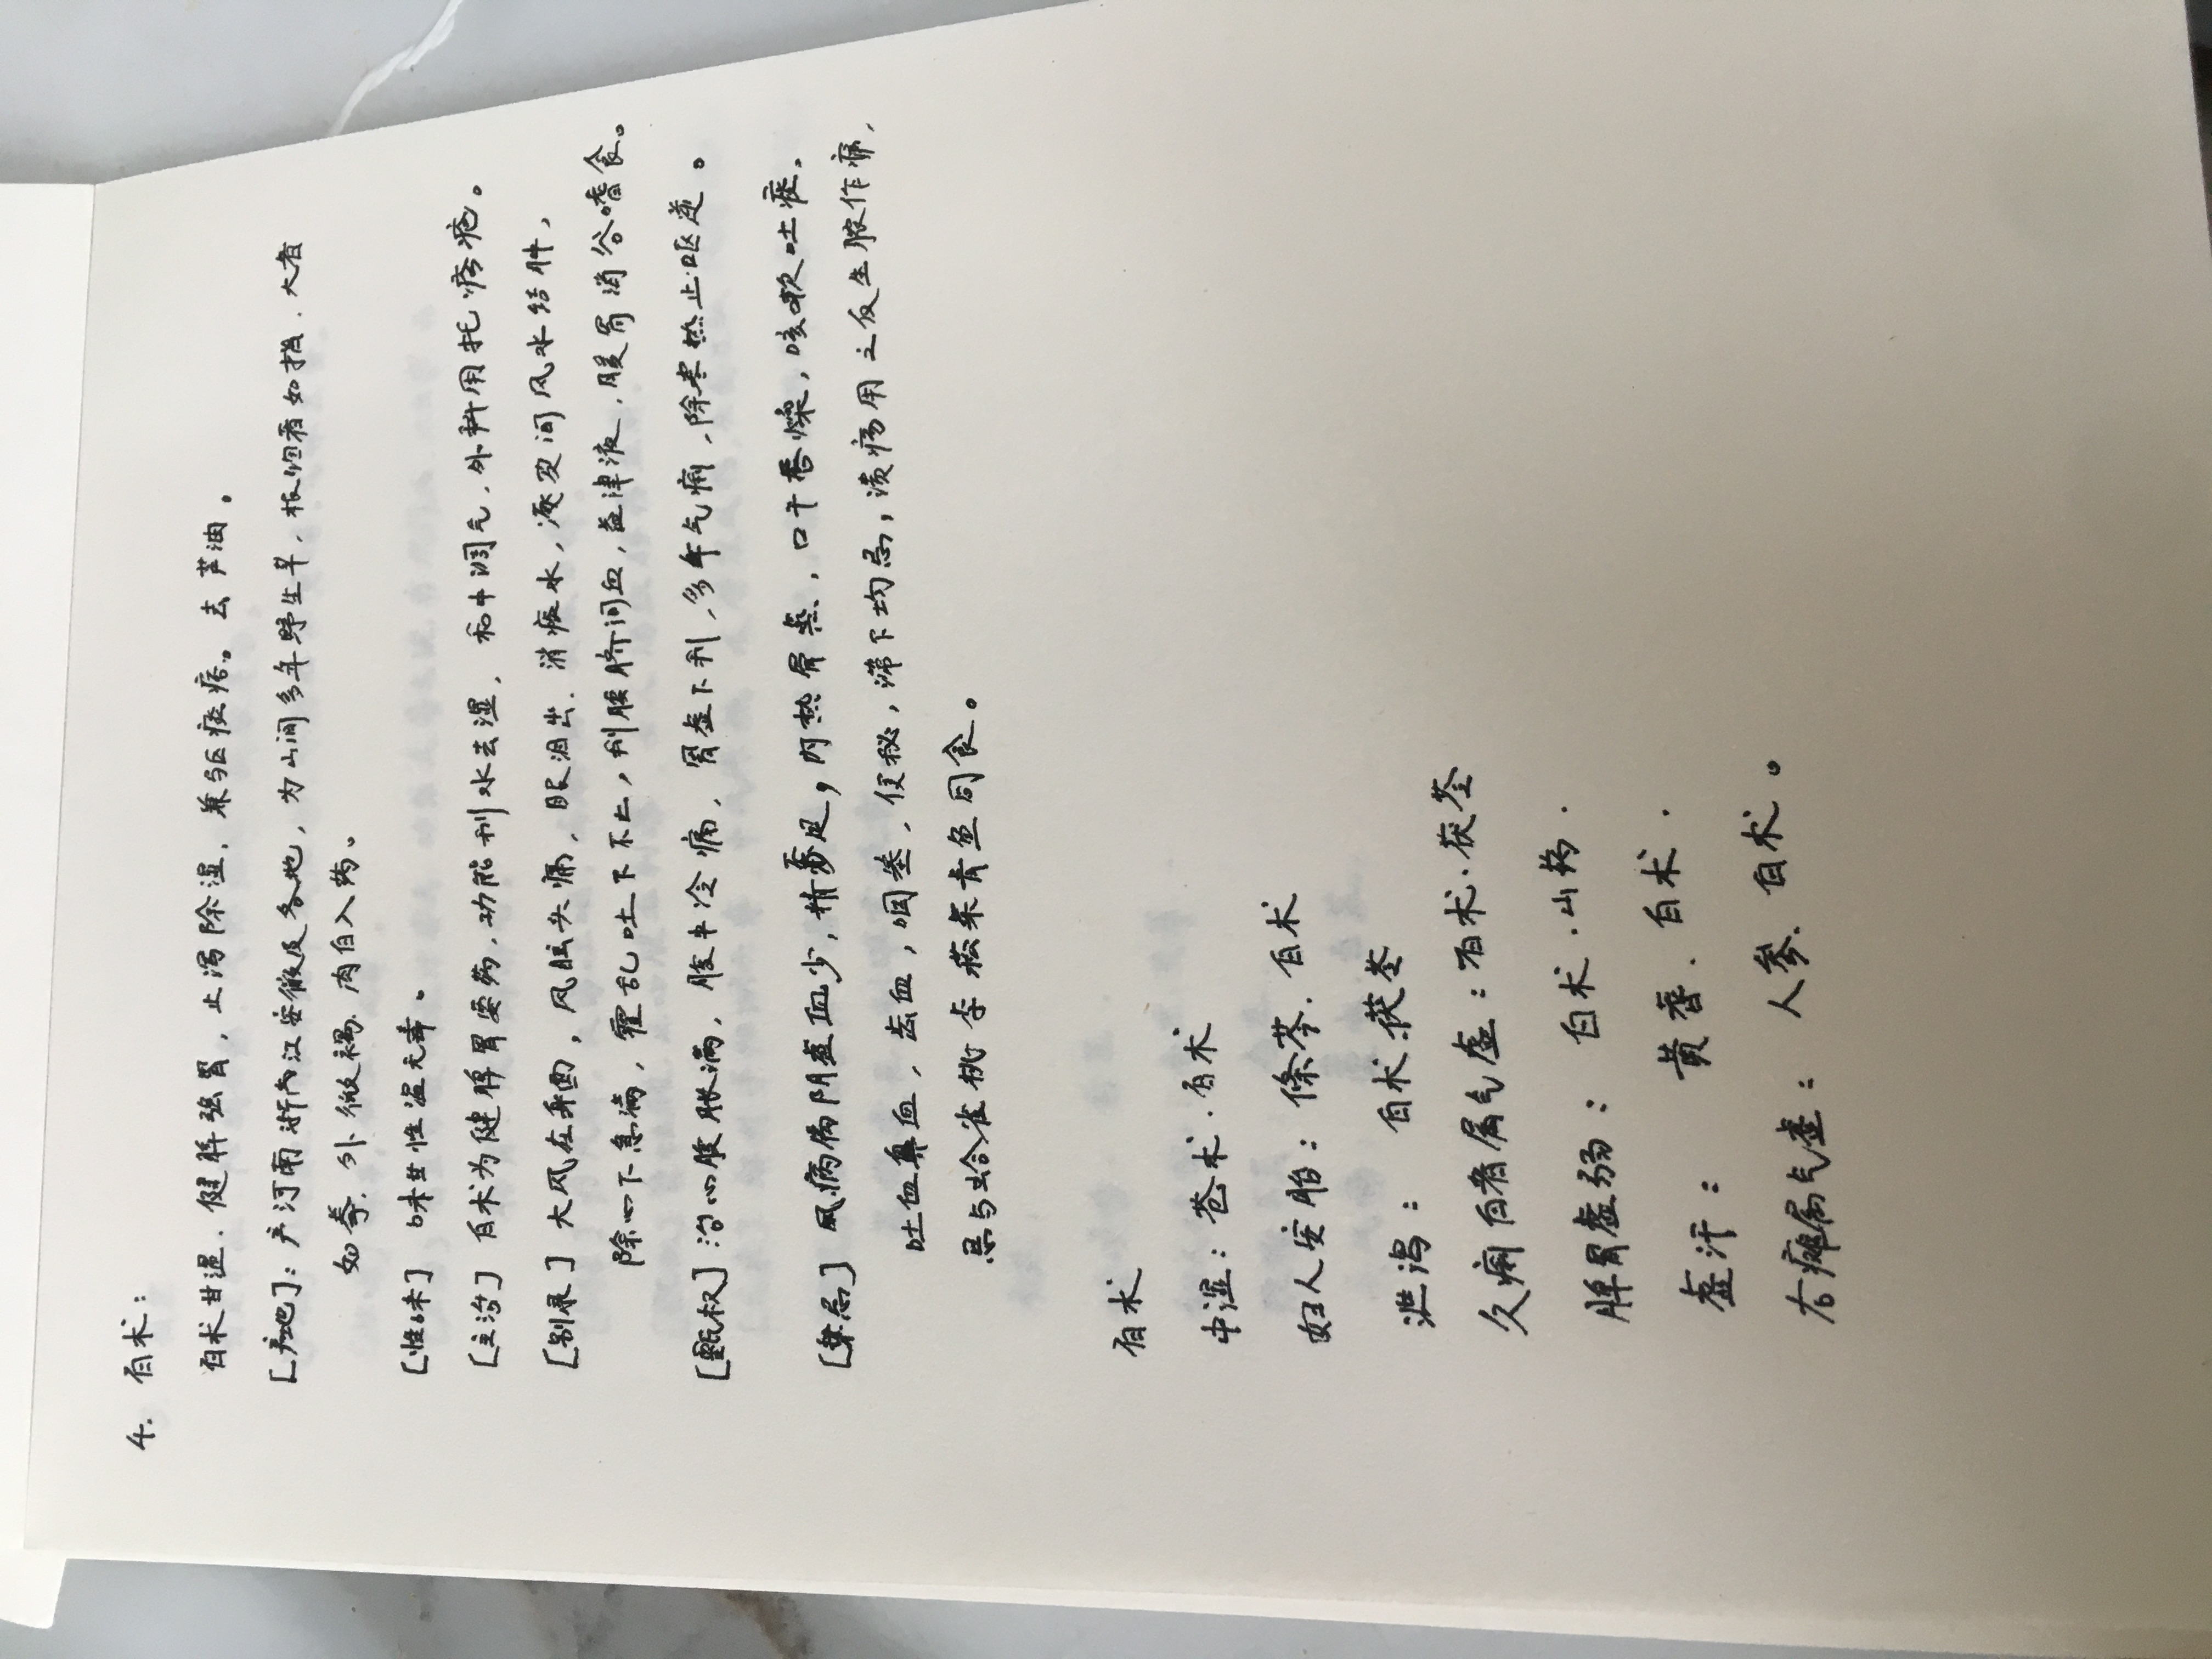 4. 白术:
白术甘温.健脾强胃,止泻除湿,兼驱痰痞。去芦油.
[产地]:产河南浙西江安徽及各地,为山间多年野生草,根细者如指.大者
如拳.外微褐.肉白入药。
[性味] 味甘性温无毒。
[主治] 白术为健脾胃要药,功能利水去湿,和中调气.外科用托疮疡。
[别录] 大风在身面,风眩头痛,眼泪出.消痰水,逐皮间风水结肿,
除心下急满,霍乱吐下不止,利腰脐间血,益津液.暖胃消谷嗜食。
[甄权] 治心腹胀满,腹中冷痛,胃虚下利,多年气痢,除寒热止呕逆。
[禁忌] 凡病属阴虚血少,精不足,内热骨蒸,口干唇燥,咳嗽吐痰.
吐血鼻血,齿血,咽塞,便秘,滞下均忌,溃疡用之反生脓作痛,
忌与蛤雀桃李菘菜青鱼同食。
白术
中湿:苍术.白术
妇人安胎:條芩.白术
泄泻:白术.茯苓
久痢白者属气虚:白术.茯苓
脾胃虚弱:白术.山药.
虚汗:黄耆.白术.
右瘫属气虚:人参.白术。